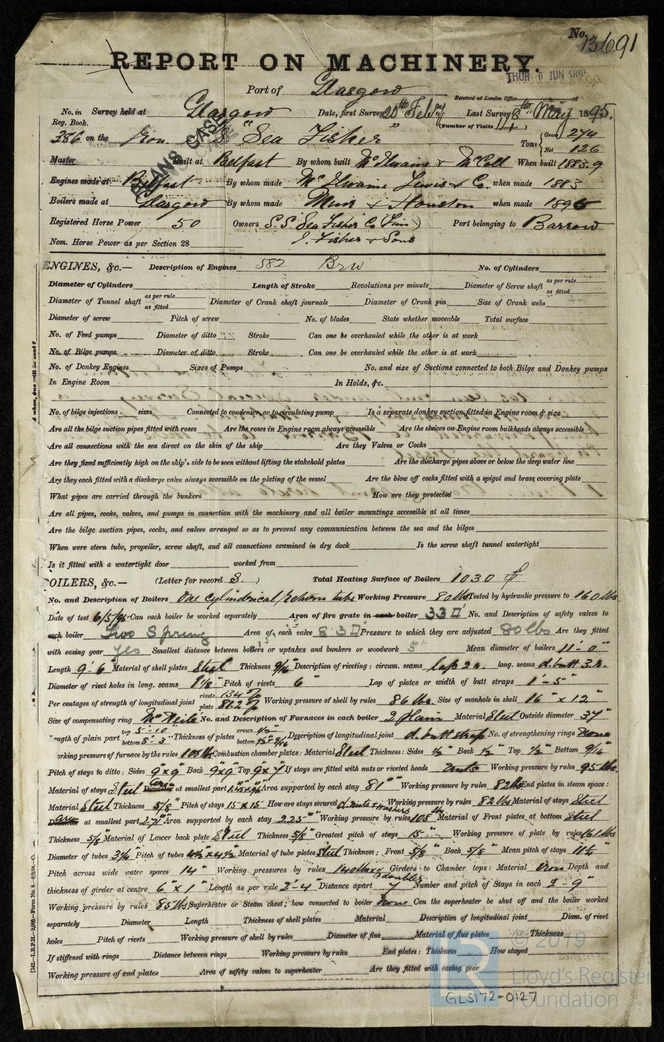 No. 13691
REPORT ON MACHINERY.
THUR 6 JUN 1895
Port of Glasgow
Received at London Office
No. in Survey held at Glasgow Date, first Survey 20th Feby Last Survey May 1895.
Reg. Book. (Number of Visits 14)
386 on the Iron S "Sea Fisher" Tons Gross 274
Net 126
Master Built at Belfast By whom built McIlwaine & McColl When built 1883.9
Engines made at Belfast By whom made McIlwaine Lewis & Co. when made 1883
Boilers made at Glasgow By whom made Muir & Houston when made 1895
Registered Horse Power 50 Owners S.S. Sea Fisher Co (Lim) Port belonging to Barrow
Nom. Horse Power as per Section 28 J. Fisher & Sons
ENGINES, &c.— Description of Engines No. of Cylinders
Diameter of Cylinders Length of Stroke Revolutions per minute Diameter of Screw shaft as per rule as fitted
Diameter of Tunnel shaft as per rule as fitted Diameter of Crank shaft journals Diameter of Crank pin Size of Crank webs
Diameter of screw Pitch of screw No. of blades State whether moveable Total surface
No. of Feed pumps Diameter of ditto Stroke Can one be overhauled while the other is at work
No. of Bilge pumps Diameter of ditto Stroke Can one be overhauled while the other is at work
No. of Donkey Engines Sizes of Pumps No. and size of Suctions connected to both Bilge and Donkey pumps
In Engine Room In Holds, &c.
No. of bilge injections sizes Connected to condenser, or to circulating pump Is a separate donkey suction fitted in Engine room & size
Are all the bilge suction pipes fitted with roses Are the roses in Engine room always accessible Are the sluices on Engine room bulkheads always accessible
Are all connections with the sea direct on the skin of the ship Are they Valves or Cocks
Are they fixed sufficiently high on the ship's side to be seen without lifting the stokehold plates Are the discharge pipes above or below the deep water line
Are they each fitted with a discharge valve always accessible on the plating of the vessel Are the blow off cocks fitted with a spigot and brass covering plate
What pipes are carried through the bunkers How are they protected
Are all pipes, cocks, valves, and pumps in connection with the machinery and all boiler mountings accessible at all times
Are the bilge suction pipes, cocks, and valves arranged so as to prevent any communication between the sea and the bilges
When were stern tube, propeller, screw shaft, and all connections examined in dry dock Is the screw shaft tunnel watertight
Is it fitted with a watertight door worked from
OILERS, &c.— (Letter for record S.) Total Heating Surface of Boilers 1030
No. and Description of Boilers One Cylindrical, Return tube Working Pressure 80 lbs Tested by hydraulic pressure to 160 lbs
Date of test 6/5/95 Can each boiler be worked separately Area of fire grate in each boiler 33 □' No. and Description of safety valves to
each boiler Two Spring Area of each valve 8.3 □" Pressure to which they are adjusted 80 lbs Are they fitted
with easing gear yes Smallest distance between boilers or uptakes and bunkers or woodwork 5" Mean diameter of boilers 11'-0"
Length 9'6 Material of shell plates Steel Thickness 9/16" Description of riveting: circum. seams lap 2 r. long. seams d. butt 3.R.
Diameter of rivet holes in long. seams Pitch of rivets 6" Lap of plates or width of butt straps 1'-5"
Per centages of strength of longitudinal joint rivets plate Working pressure of shell by rules 86 lbs Size of manhole in shell 16" x 12"
Size of compensating ring McNeile No. and Description of Furnaces in each boiler 2 plain Material Steel Outside diameter 37"
Length of plain part top 5-10 bottom 5-3 Thickness of plates crown bottom Description of longitudinal joint d. butt strap No. of strengthening rings None
Working pressure of furnace by the rules 105 lbs Combustion chamber plates: Material Steel Thickness: Sides 1/2" Back 1/2" Top 1/2" Bottom 9/16"
Pitch of stays to ditto: Sides 9"x9 Back 9"x9" Top 9"x7" If stays are fitted with nuts or riveted heads nuts Working pressure by rules 95 lbs
Material of stays Steel at smallest part Area supported by each stay 81" Working pressure by rules 82 lbs End plates in steam space:
Material Steel Thickness 5/8" Pitch of stays 15 x 15" How are stays secured Working pressure by rules 82 lbs Material of stays Steel
at smallest part Area supported by each stay 225" Working pressure by rules 108 lbs Material of Front plates at bottom Steel
Thickness 5/8" Material of Lower back plate Steel Thickness 5/8" Greatest pitch of stays 15 Working pressure of plate by rules
Diameter of tubes 3 1/4" Pitch of tubes Material of tube plates Steel Thickness: Front 5/8" Back 5/8" Mean pitch of stays
Pitch across wide water spaces 14" Working pressures by rules Girders to Chamber tops: Material Iron Depth and
thickness of girder at centre 6" x 1" Length as per rule 2-4 Distance apart 7" Number and pitch of Stays in each 2-9"
Working pressure by rules 85 lbs Superheater or Steam chest; how connected to boiler None Can the superheater be shut off and the boiler worked
separately Diameter Length Thickness of shell plates Material Description of longitudinal joint Diam. of rivet
holes Pitch of rivets Working pressure of shell by rules Diameter of flue Material of flue plates Thickness
If stiffened with rings Distance between rings Working pressure by rules End plates: Thickness How stayed
Working pressure of end plates Area of safety valves to superheater Are they fitted with easing gear
© 2019
Lloyd's Register
Foundation
GLS172-0127